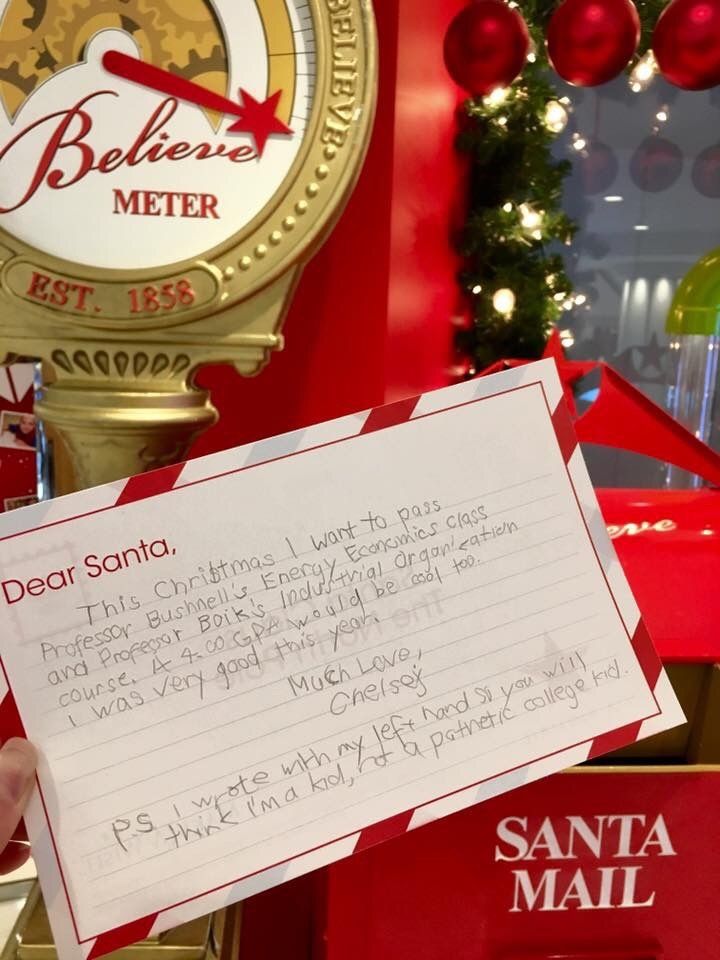 BELIEVE
Believe
METER
EST. 1858
Dear Santa,
This Christmas I want to pass
Professor Bushnell's Energy Economics class
and Professor Boik's Industrial Organization
course. A 4.00 GPA would be cool too.
I was very good this year.
Much Love,
Chelsey
P.S. I wrote with my left hand so you will
think I'm a kid, not a pathetic college kid.
eve
SANTA
MAIL